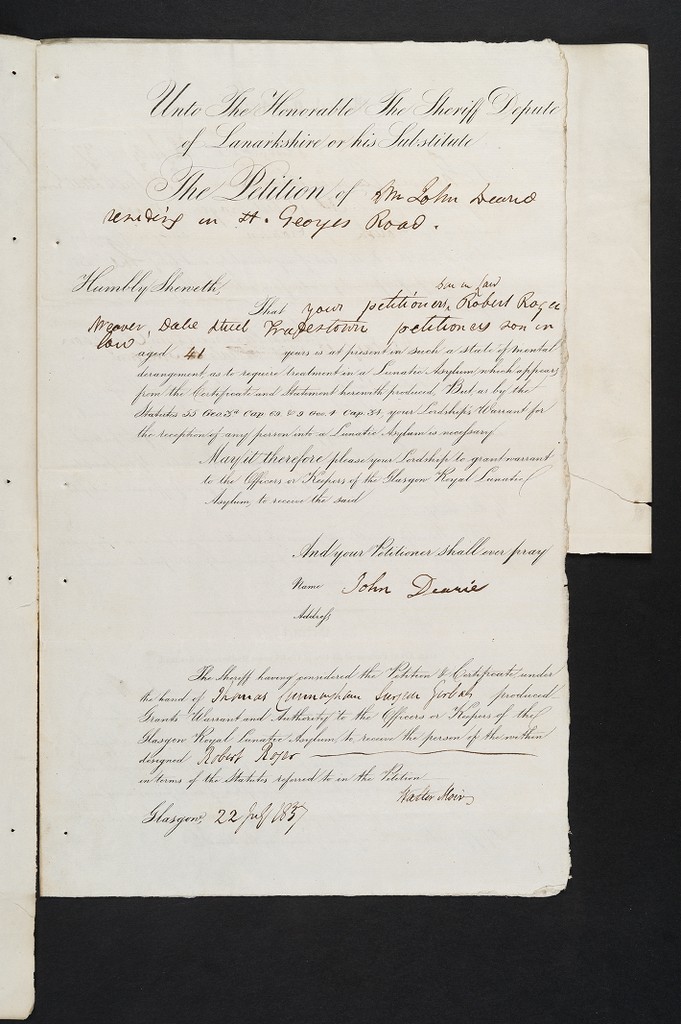 Unto The Honorable The Sheriff Depute
of Lanarkshire or his Substitute
The Petition of Mr John Dearie
residing in St. Georges Road.
Humbly Sheweth,
son in law
That your petitioners, Robert Roger
Weaver, Dale Street Tradestown petitioners son in
law
aged 41 years is at present in such a state of mental
derangement as to require treatment in a Lunatic Asylum, which appears
from the Certificate and Statement herewith produced, But, as by the
Statutes 55 Geo. 3d Cap. 69. & 9 Geo. 4 Cap. 34, your Lordship's Warrant for
the reception of any person into a Lunatic Asylum is necessary
May it therefore please your Lordship to grant warrant
to the Officers or Keepers of the Glasgow Royal Lunatic
Asylum, to receive the said
And your Petitioner shall ever pray
Name John Dearie
Address
The Sheriff having considered the Petition & Certificate, under
the hand of Thomas Cunningham Surgeon Gorbals produced
Grants Warrant and Authority to the Officers or Keepers of the
Glasgow Royal Lunatic Asylum, to receive the person of the within
designed Robert Roger
in terms of the Statutes referred to in the Petition
Walter Moir
Glasgow, 22 July 1837